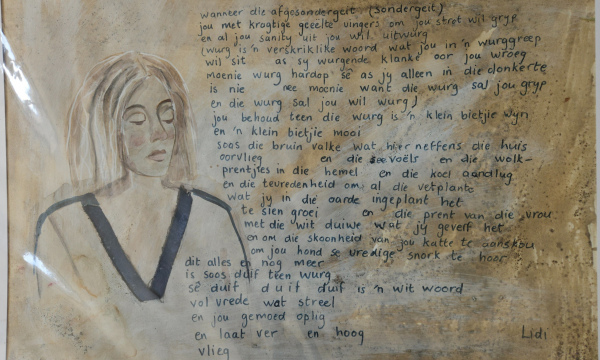 wanneer die afgesondergeit (sondergeit)
jou met krogtige geelte vingers om jou strot wil gryp
en al jou sanity uit jou wil uitwurg
(wurg is 'n verskriklike woord wat jou in 'n wurggreep
wil sit as sy wurgende klanke oor jou wroeg
moenie wurg hardop sê as jy alleen in die donkerte
is nie nee moenie want die wurg sal jou gryp
en die wurg sal jou wil wurg)
jou behoud teen die wurg is 'n klein bietjie wyn
en 'n klein bietjie mooi
soos die bruin valke wat hier neffens die huis
oorvlieg en die seevoëls en die wolk-
prentjies in die hemel en die koel aandlug
en die tevredenheid om al die vetplante
wat jy in die aarde ingeplant het
te sien groei en die prent van die vrou
met die wit duiwe wat jy geverf het
en om die skoonheid van jou katte te aanskou
om jou hond se vredige snork te hoor
dit alles en nog meer
is soos duif teen wurg
sê duif, duif duif is 'n wit woord
vol vrede wat streel
en jou gemoed oplig
en laat ver en hoog
vlieg
Lidi